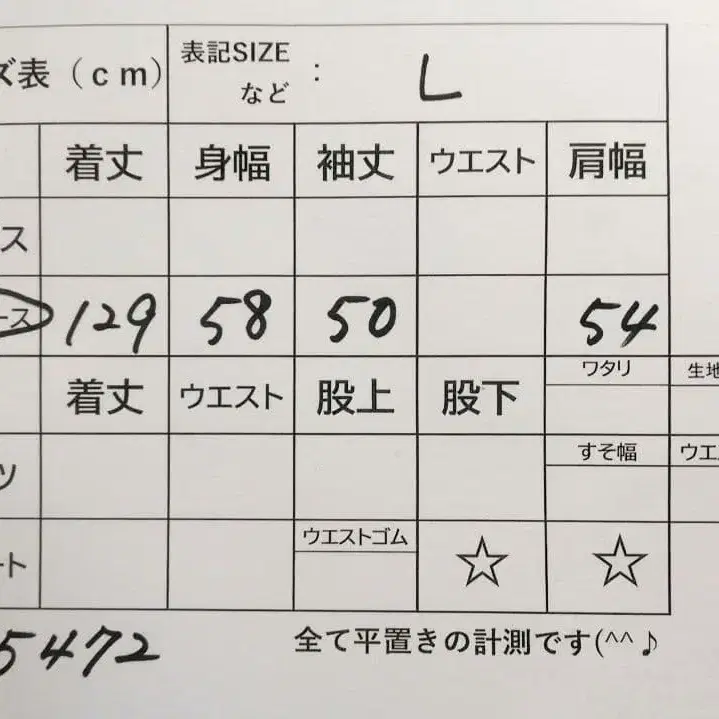 ズ表（ｃｍ） 表記SIZE など : L
着丈 身幅 袖丈 ウエスト 肩幅
ス
ース 129 58 50 54
着丈 ウエスト 股上 股下 ワタリ 生地
ツ すそ幅 ウエ
ート ウエストゴム ☆ ☆
5472 全て平置きの計測です(^^♪